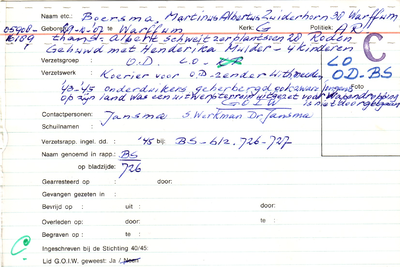 Naam etc.: Boersma, Martinus Albertus Zuiderhorn 30 Warffum
05908- Geboren te Warffum Kerk: G Politiek: AR
thans: Albert Schweitzerplantsoen 20 Roden
Gehuwd met Henderika Mulder - 4 kinderen
Verzetsgroep : O.D. L.O -
LO
OD-BS
Verzetswerk : Koerier voor O.D-zender Withmeden,
Foto
43-45 onderduikers geherbergd ook zware jongens
op zijn land was een uitwerpterrein uitgezet voor wapendropping
is niet doorgegaan
C
Contactpersonen: Jansma S. Werkman Dr. Jansma
Schuilnaam :
Verzetsrapp. ingel. dd. : '45 bij: BS-blz. 726-727
Naam genoemd in rapp.: BS
op bladzijde: 726
Gearresteerd op : door:
Gevangen gezeten in :
Bevrijd op : uit : door:
Overleden op: door: te :
Begraven op : te :
Ingeschreven bij de Stichting 40/45:
Lid G.O.I.W. geweest: Ja / Neen